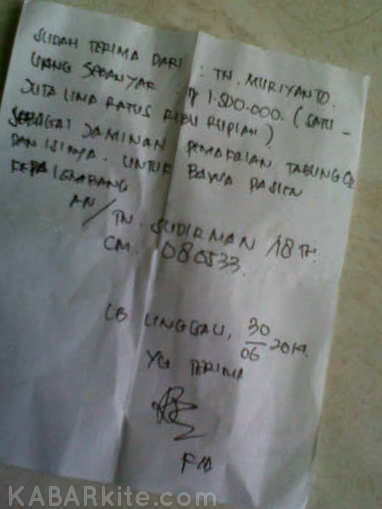 SUDAH TERIMA DARI : TN. MURIYANTO.
UANG SEBANYAK Rp 1.500.000. (SATU -
JUTA LIMA RATUS RIBU RUPIAH)
SEBAGAI JAMINAN PEMAKAIAN TABUNG O2
DAN ISINYA. UNTUK BAWA PASIEN
KEPALEMBANG
AN/ TN. SUDIRMAN /18 TH.
CM. 080533.
LB LINGGAU, 30/06 2014.
YG TERIMA
KABARkite.com